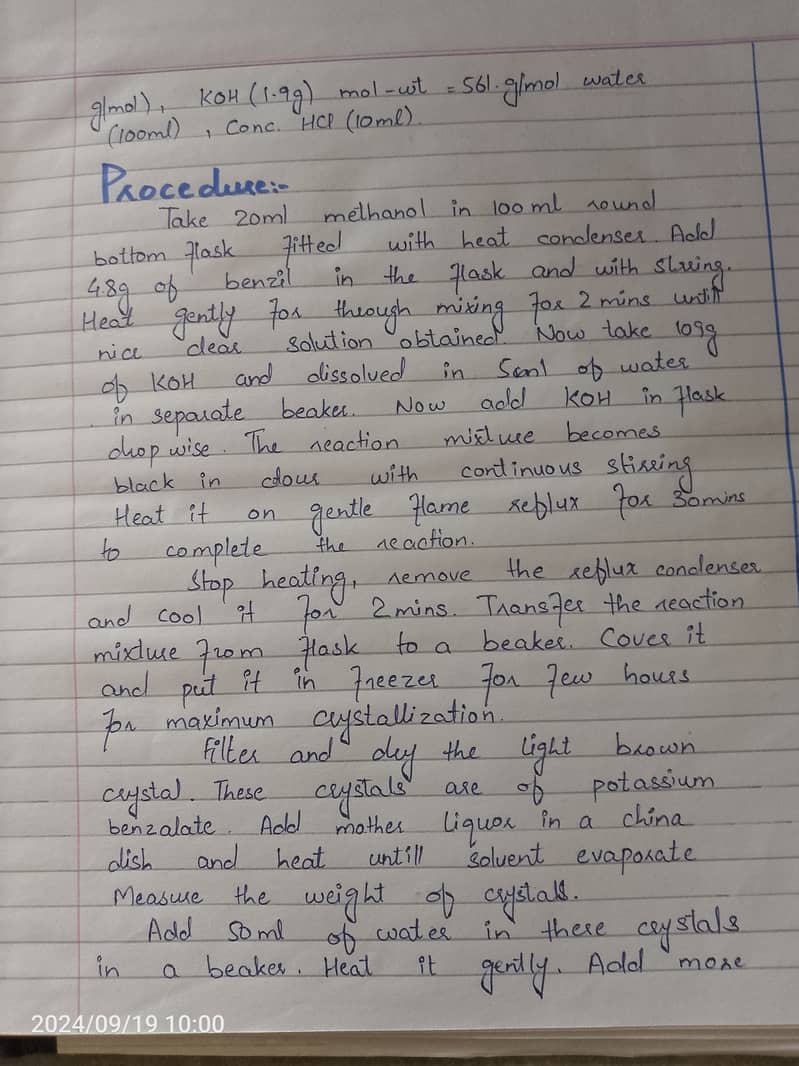 g/mol), KOH (1.9g) mol-wt = 561.g/mol water
(100ml), Conc. HCl (10ml).
Procedure:-
Take 20ml methanol in 100 ml round
bottom flask fitted with heat condenser. Add
4.8g of benzil in the flask and with stirring.
Heat gently for through mixing for 2 mins untill
nice clear solution obtained. Now take 109g
of KOH and dissolved in 5ml of water
in separate beaker. Now add KOH in flask
drop wise. The reaction mixture becomes
black in colour with continuous stirring
Heat it on gentle flame reflux for 30mins
to complete the reaction.
Stop heating, remove the reflux condenser
and cool it for 2 mins. Transfer the reaction
mixture from flask to a beaker. Cover it
and put it in freezer for few hours
for maximum crystallization.
Filter and dry the light brown
crystal. These crystals are of potassium
benzalate. Add mother liquor in a china
dish and heat untill solvent evaporate
Measure the weight of crystals.
Add 50 ml of water in these crystals
in a beaker. Heat it gently. Add more
2024/09/19 10:00